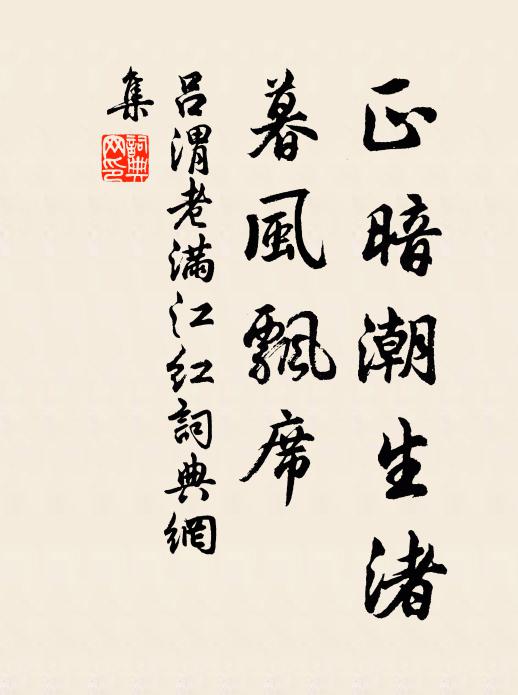 正暗潮生渚
暮風飄席
呂渭老滿江红詞典網
集
詞典网印